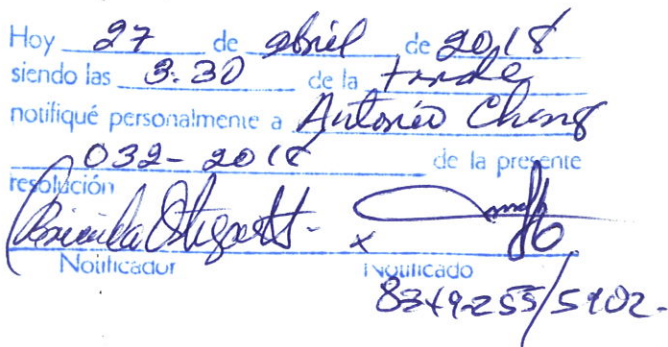 Hoy 27 de abril de 2018
siendo las 3:30 de la tarde
notifiqué personalmente a Antonio Cheng
032-2018 de la presente
resolución
Notificador Notificado